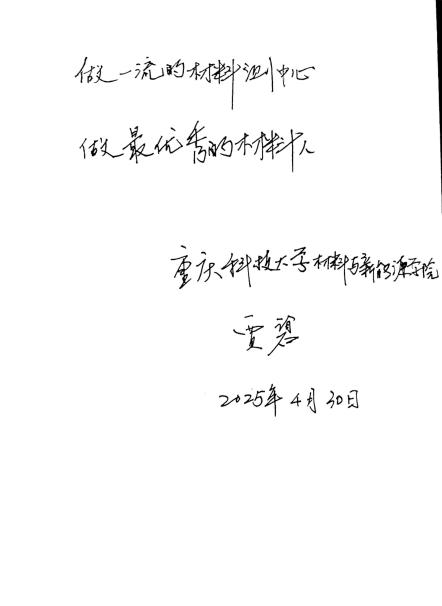 做一流的材料测中心
做最优秀的材料人
重庆科技大学材料与新能源学院
贾碧
2025年4月30日